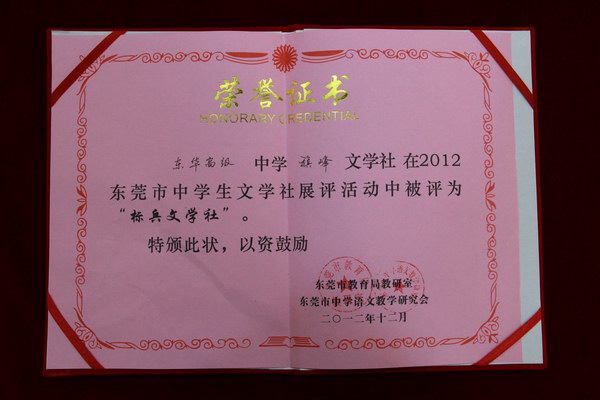 荣誉证书
HONORARY CREDENTIAL
东华高级 中学 旗峰 文学社 在2012
东莞市中学生文学社展评活动中被评为
“标兵文学社”。
特颁此状，以资鼓励
东莞市教育局教研室
东莞市中学语文教学研究会
二〇一二年十二月